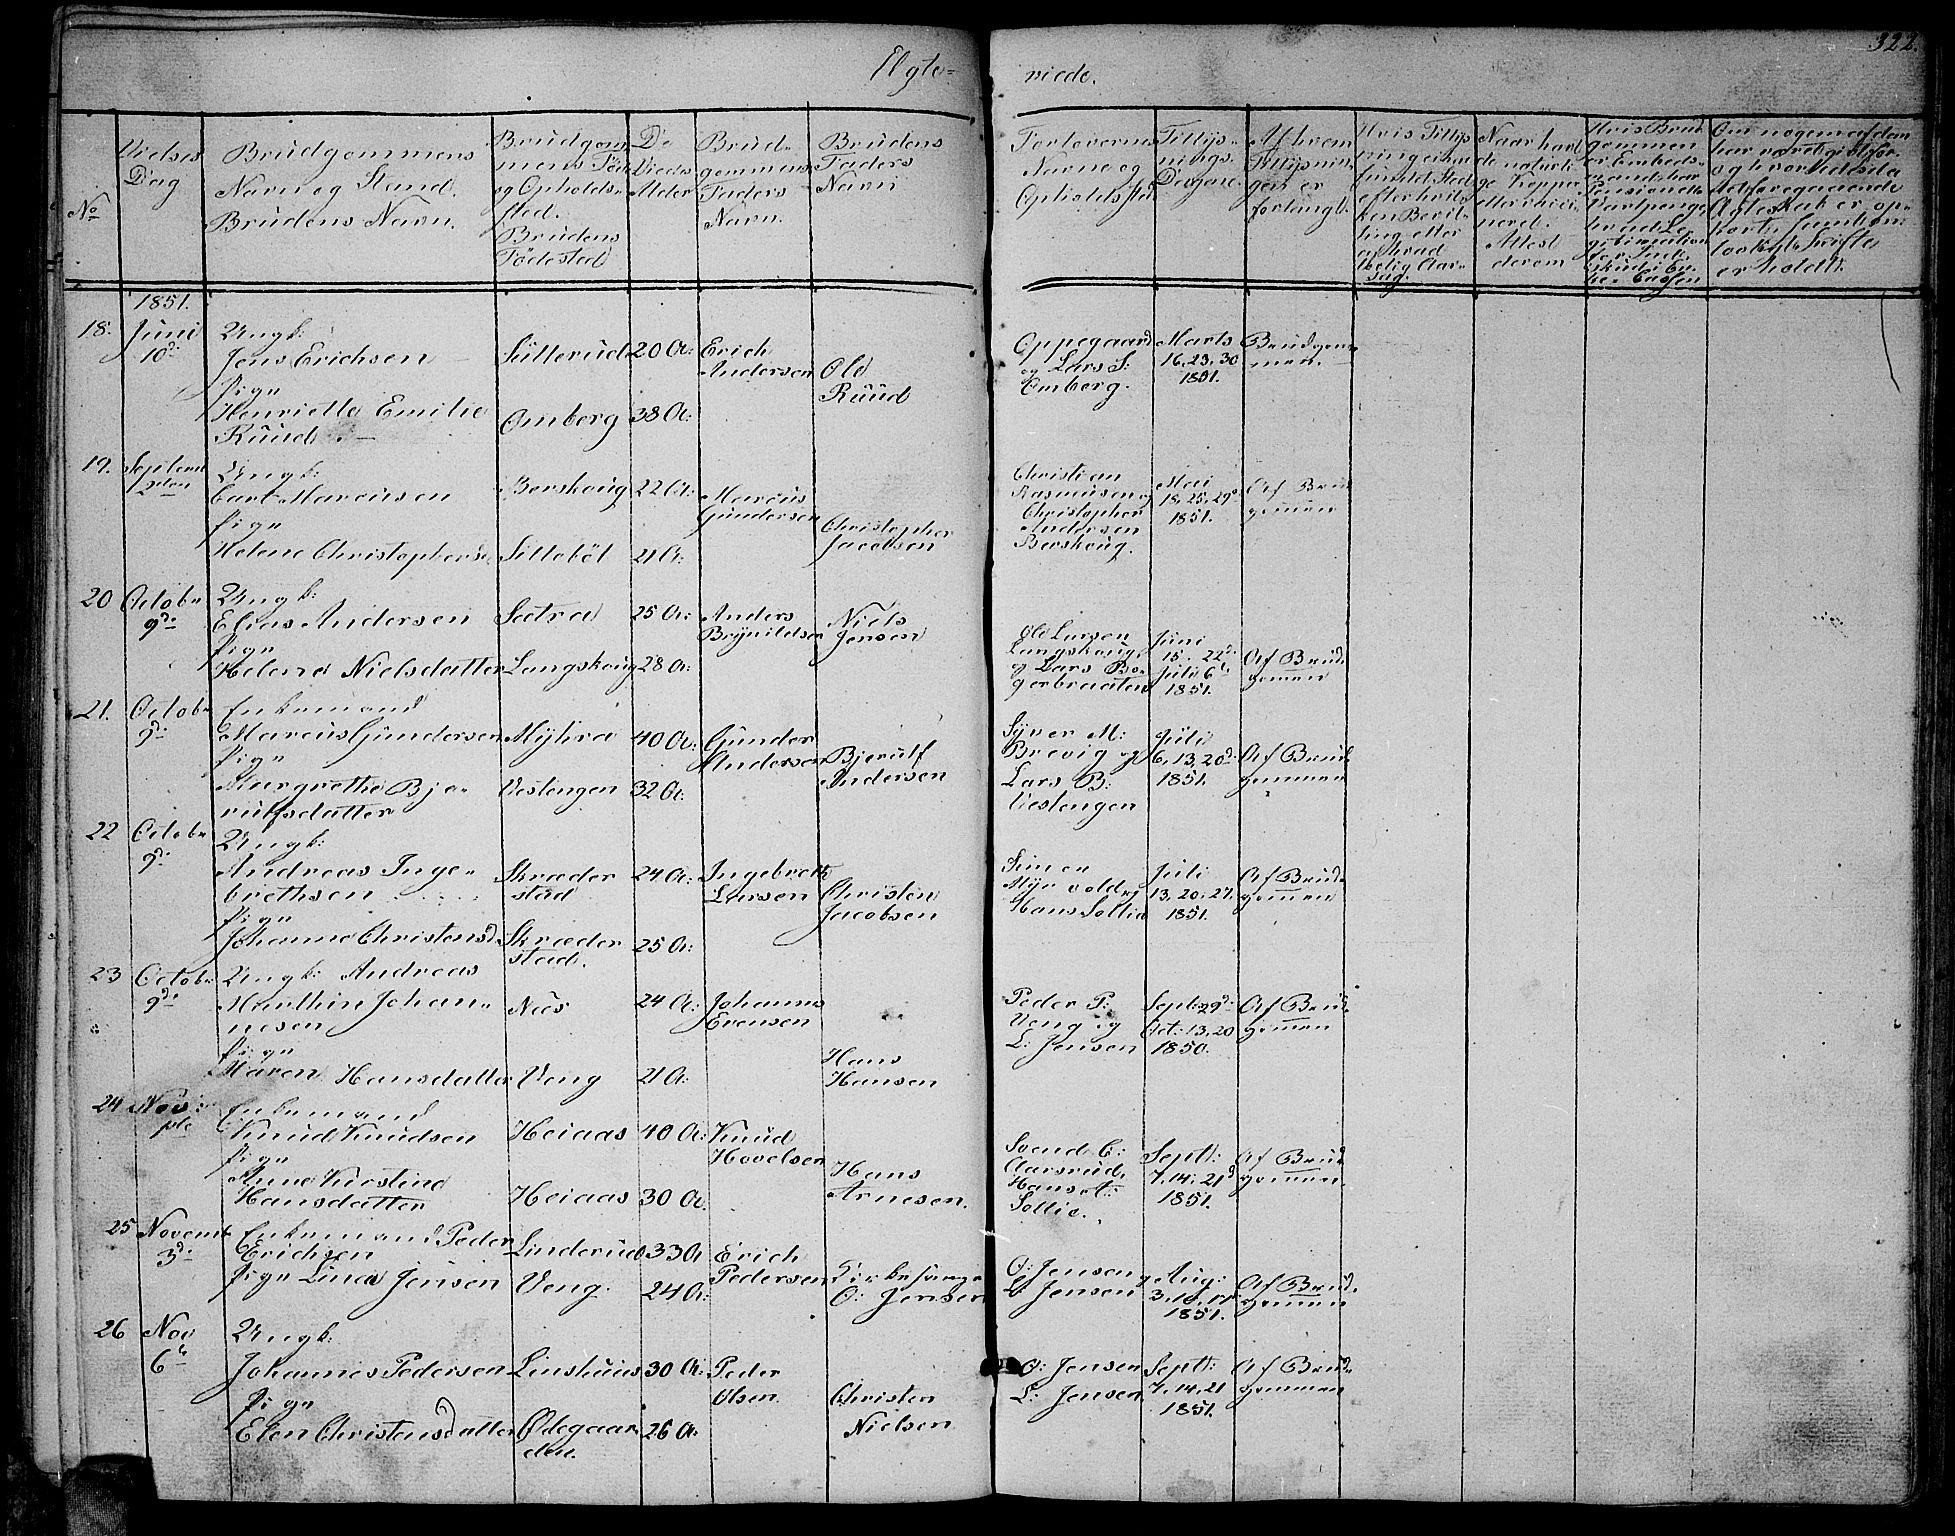 322.
Ægte= viede.
No
Vielses
Dag
Brudgommens
Navn og Stand.
Brudens Navn.
Brudgom
mens Føde
og Opholds-
sted.
Brudens
Fødested
De
Viedes
Alder
Brud-
gommens
Faders
Navn.
Brudens
Faders
Navn
Forlovernes
Navne og
Opholdssted
Tillys-
nings-
Dagene.
Af hvem
Tillysnin-
gen er
forlangt.
Hvis Tillys
ning ei har
fundet Sted
efter hvil-
ken Bevil-
ling eller
af hvad
lovlig Aar-
sag.
Naar havt
de naturli-
ge Kopper
eller vacci-
nered.
Attest
derom
Hvis Brud
gommen
er Embeds-
mand
Pensionist
1851.
18. Juni
10d:
Ungk:
Jens Erichsen
Pige
Henriette Emilie
Ruud.
Sütterud
Omberg
20 A:
38 A:
Erich
Andersen
Ole
Ruud
Oppegaard
og Lars S:
Omberg.
Marts
16. 23. 30
1851.
Brudgom-
men.
19. Septem
2den
Ungk:
Carl Marcusen
Pige
Helene Christophers
Berskoug
Sittebøl
22 A:
21 A:
Marcus
Gundersen
Christopher
Jacobsen
Christian
Rasmusen og
Christopher
Andersen
Berskoug.
Mai
18. 25. 29d
1851.
Af Brud
gommen
20 Octobr
9d:
Ungk:
Elias Andersen
Pige
Helene Nielsdatter
Sætra
Langskoug
25 A:
28 A:
Anders
Brynildsen
Niels
Jensen
Ole Larsen
Langskoug
og Lars Bø-
gerbraaten
Juni
15. 22d:
Juli 6d
1851.
Af Brud-
gommen
21. Octobr
9d:
Enkemand
Marcus Gundersen
Pige
Margrethe Bje-
rulfsdatter
Myhra
Vestengen
40 A:
32 A:
Gunder
Andersen
Bjerulf
Andersen
Syver M:
Brevig og
Lars B:
Vestengen
Juli
6. 13. 20d:
1851.
Af Brud-
gommen
22 Octobr
9d:
Ungk:
Andreas Inge-
brethsen
Pige
Johanne Christensd
Skræder
stad
Skræder
stad.
24 A:
25 A:
Ingebreth
Larsen
Christen
Jacobsen
Simen
Myrvold og
Hans Sollie
Juli
13. 20. 27.
1851.
Af Brud-
gommen
23 Octobr
9d:
Ungk: Andreas
Marthin Johan-
nesen
Pige
Maren Hansdatter
Næs
Veng
24 A:
21 A:
Johannes
Evensen
Hans
Hansen
Peder P:
Veng og
L: Jensen
Sept: 29d:
Oct: 13. 20
1850.
Af Brud-
gommen
24 Nov:
Enkemand
Knud Knudsen
Pige
Anne Kirstine
Hansdatter
Heiaas
Heiaas
40 A:
30 A.
Knud
Hovelsen
Hans
Arnesen.
Svend C:
Aarsrud,
Hans A:
Sollie.
Sept:
7. 14. 21d
1851.
Af Brud
gommen.
25 Novemb
3d:
Enkemand Peder
Erichsen
Pige Lina Jensen
Linderud
Veng.
33 A
24 A:
Erich
Pedersen
Kirkesanger
O: Jensen
O: Jensen
L: Jensen
Aug:
3. 10. 17
1851.
Af Brud-
gommen
26 Nov
6te
Ungk:
Johannes Pedersen
Pige
Elen Christensdatter
Linshuus
Ødegaar-
den.
30 A:
26 A.
Peder
Olsen.
Christen
Nielsen
O: Jensen
L: Jensen
Sept:
7. 14. 21
1851.
Af Brud-
gommen